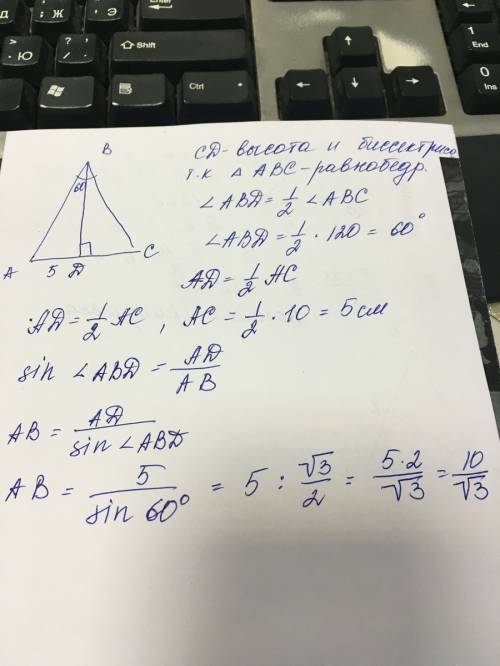 Д
; Ж
' Э
Enter
> . Ю
? / ,
Shift
Alt
Ctrl
↑
←
↓
→
1 End
0 Ins
B
60
A
5 D
C
CD - высота и биссектриса
т.к △ ABC - равнобедр.
∠ABD = 1/2 ∠ABC
∠ABD = 1/2 · 120 = 60°
AD = 1/2 AC
AD = 1/2 AC , AC = 1/2 · 10 = 5 см
sin ∠ABD = AD/AB
AB = AD/sin ∠ABD
AB = 5/sin 60° = 5 : √3/2 = 5·2/√3 = 10/√3